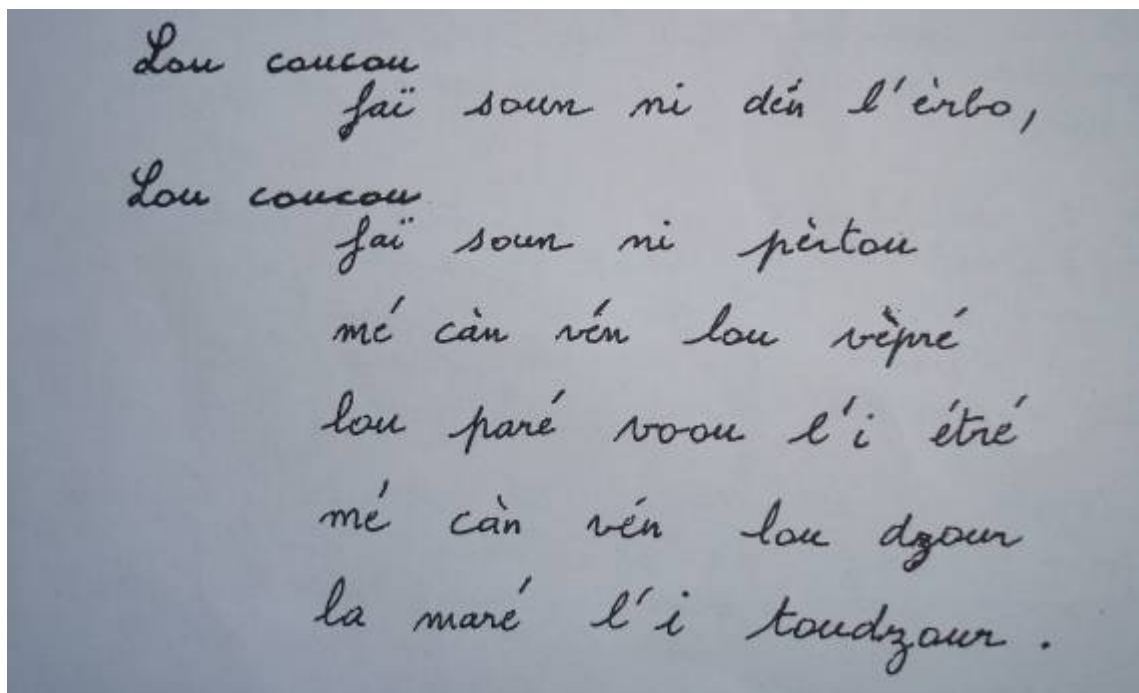 Lou coucou
faï soun ni dén l'èrbo,
Lou coucou
faï soun ni pèrtou
mé càn vén lou vèpré
lou paré voou l'i étré
mé càn vén lou dzour
la maré l'i toudzour.